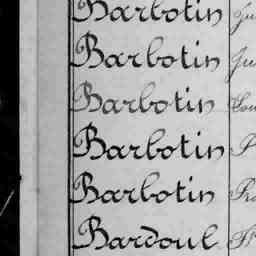 Barbotin
Barbotin
Barbotin
Barbotin
Barbotin
Bardoul